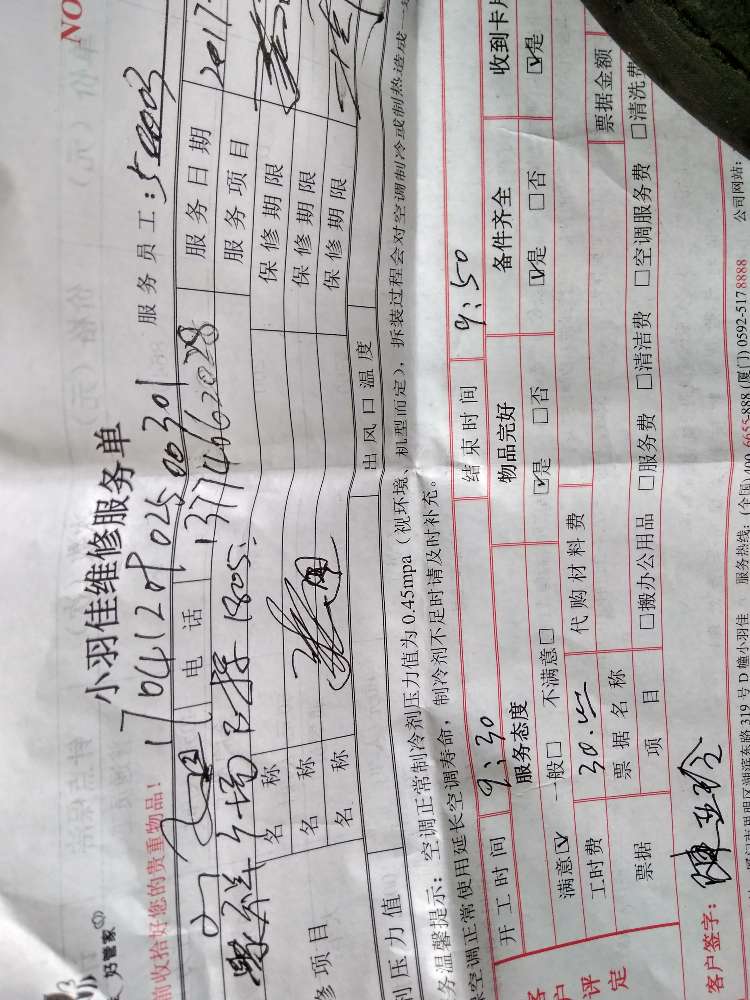 NO
好管家
小羽佳维修服务单
17041201025 00301
前收拾好您的贵重物品!
服务员工:
电话 13774662028 服务日期 2017
1805 服务项目
名称 保修期限
修项目 名称 保修期限
名称 保修期限
剂压力值 出风口温度
务温馨提示:空调正常制冷剂压力值为0.45mpa(视环境、机型而定),拆装过程会对空调制冷或制热造成一
空调正常使用延长空调寿命,制冷剂不足时请及时补充。
开工时间 9:30 结束时间 9:50
服务态度 物品完好 备件齐全 收到卡片
满意☑ 一般□ 不满意□ ☑是 □否 ☑是 □否 ☑是
户评定
工时费 30.- 代购材料费
票据 票据名称 票据金额
项目 □搬办公用品 □服务费 □清洁费 □空调服务费 □清洗费
客户签字:
明区湖滨东路319号D幢小羽佳 服务热线:(全国)400-6655-888 (厦门)0592-5178888 公司网站: